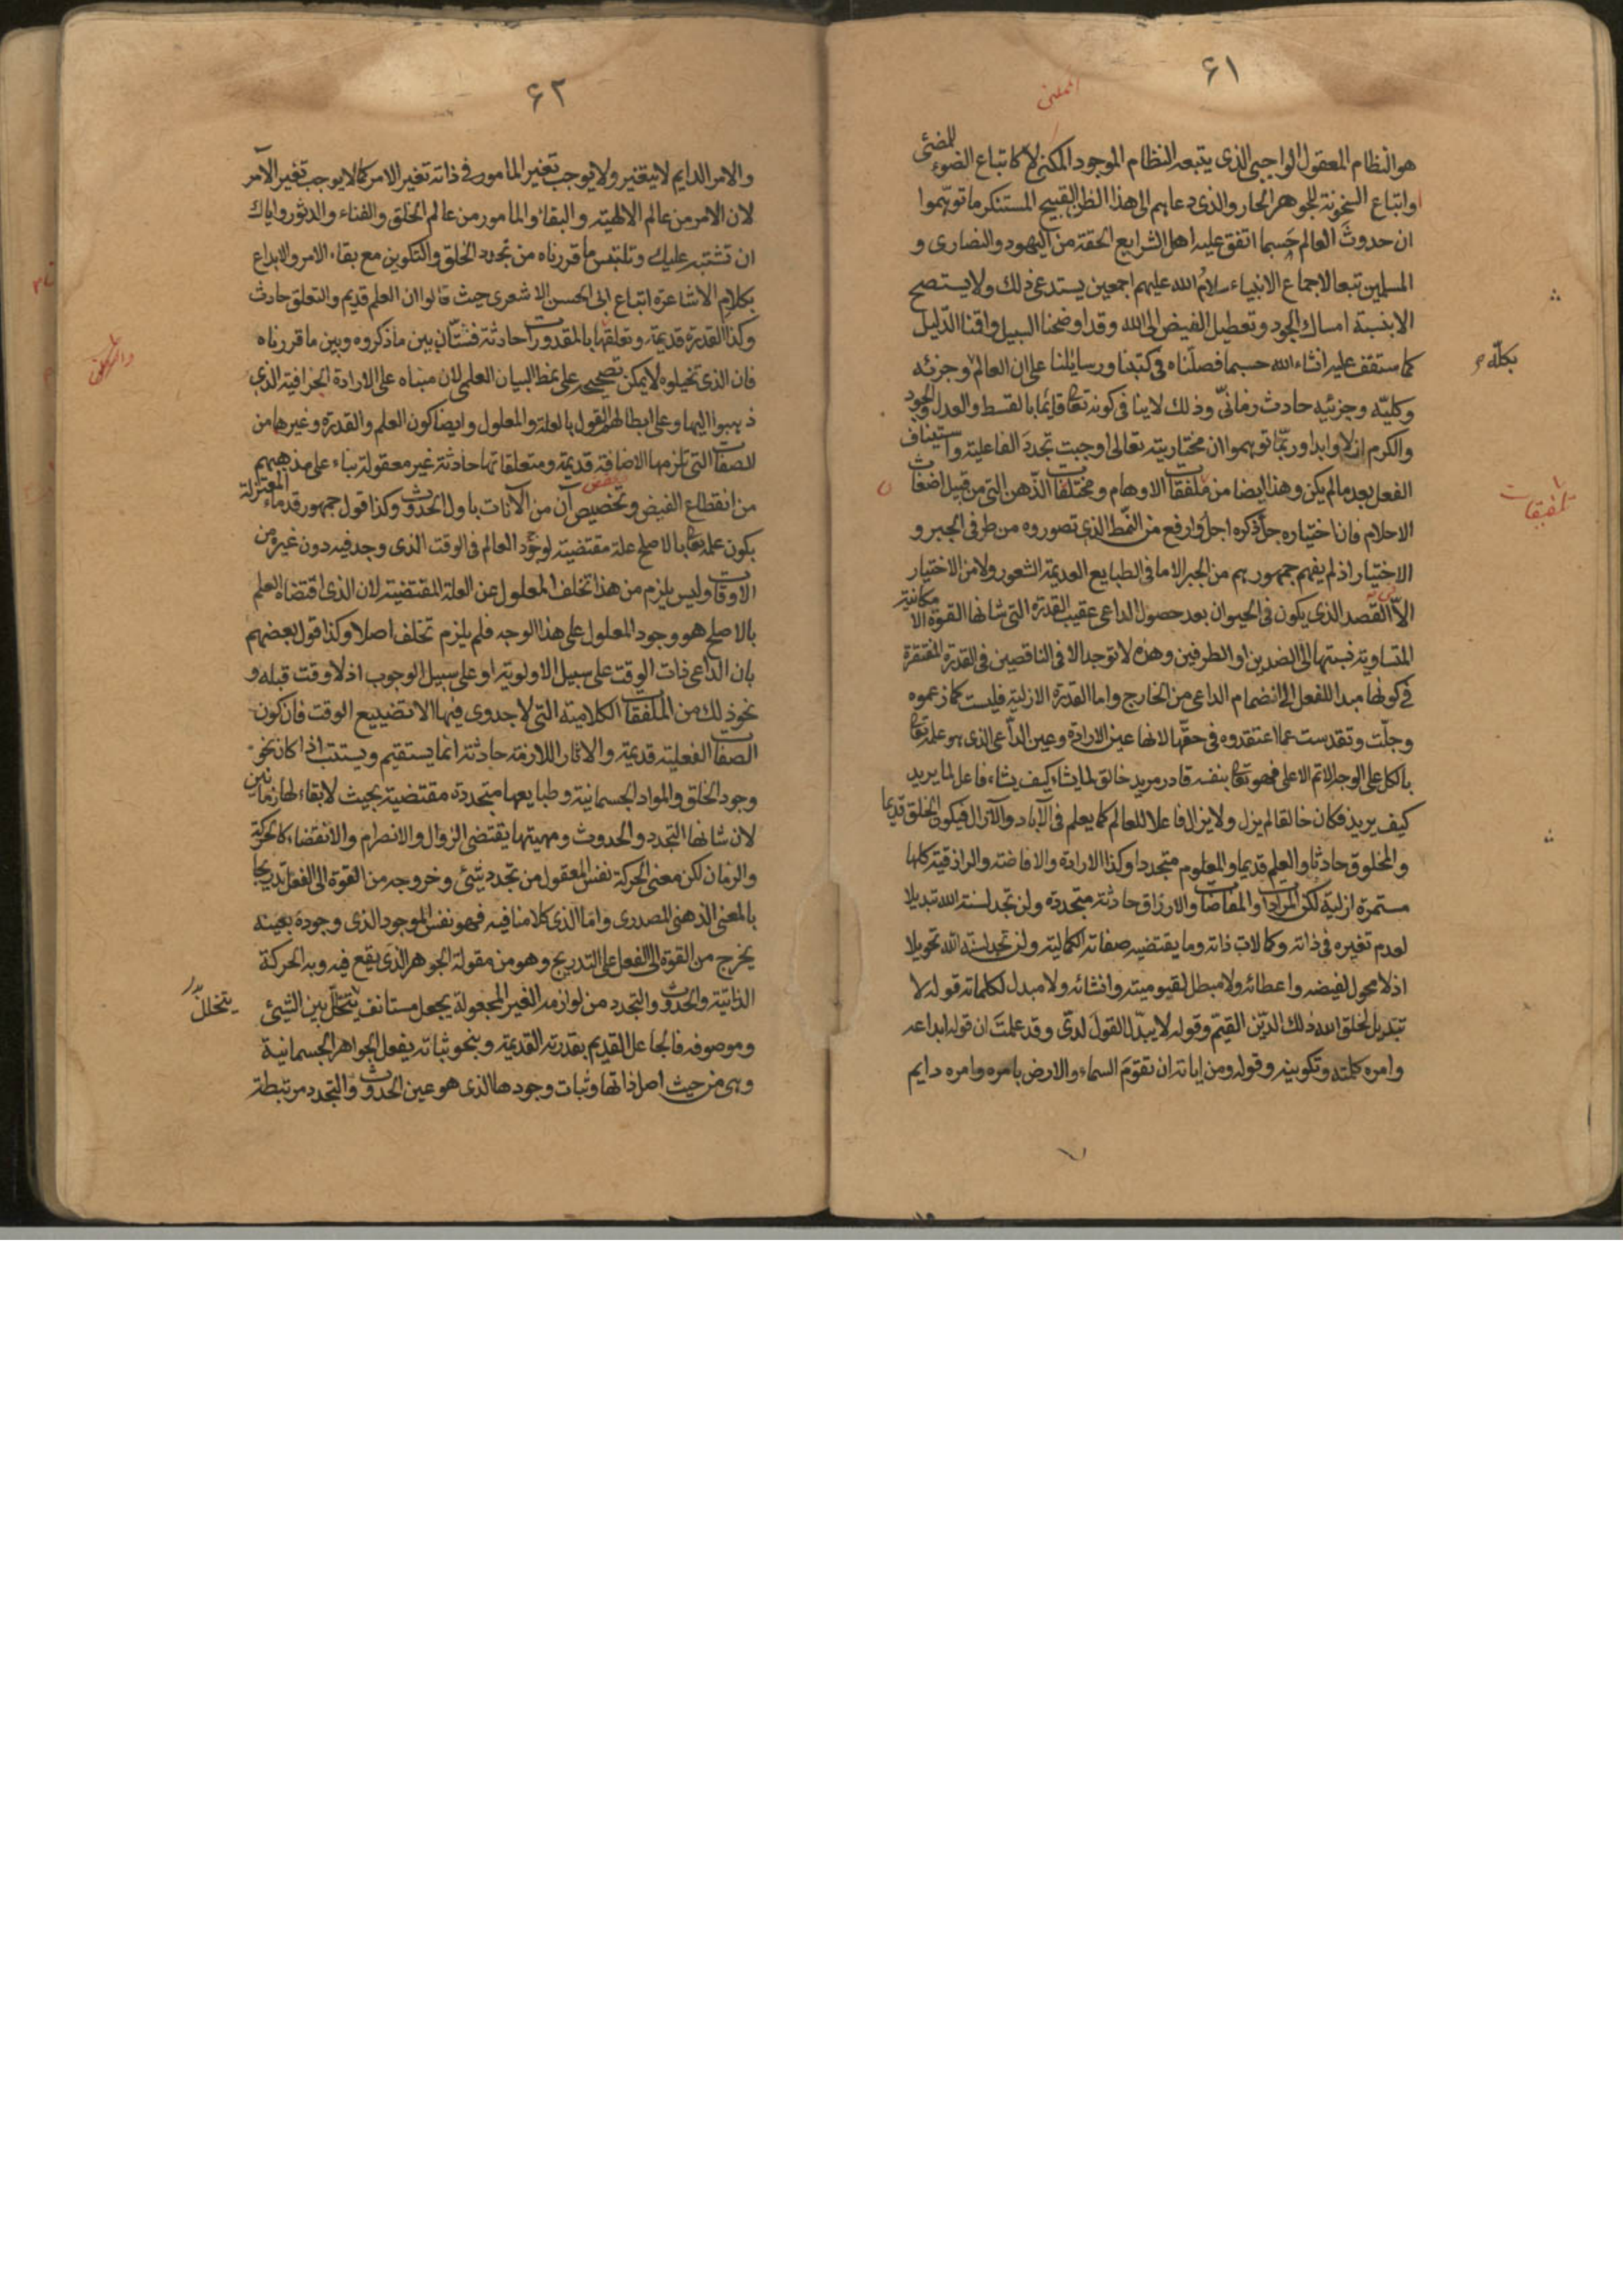 ٦١
هو النظام المعقول الواجبى الذى يتبعه النظام الموجود الممكن لا كاتباع الضوء للمضئى
واتباع السخونة للجوهر الحار والذى دعاهم الى هذا الظن القبيح المستنكر ما توهّموا
ان حدوث العالم حسبما اتفق عليه اهل الشرايع الحقة من اليهود والنصارى و
المسلمين تبعا لاجماع الانبياء سلام الله عليهم اجمعين يستدعى ذلك ولا يستصح
الا بنسبة امساك الجود وتعطيل الفيض الى الله وقد اوضحنا السبيل واقمنا الدّليل
كما ستقف عليه انشاء الله حسبما فصلّناه فى كتبنا ورسايلنا على ان العالم وجزئه
بكلّه
وكليّه وجزئيه حادث زمانىّ وذلك لا ينافى كونه تعا قائما بالقسط والعدل والجود
والكرم ازلا وابدا وربّما توهموا ان مختاريته تعالى اوجبت تجدد الفاعلية واستيناف
الفعل بعد ما لم يكن وهذا ايضا من ملفقات الاوهام ومختلقات الذّهن التى من قبيل اضغاث
تلفيقات
الاحلام فان اختياره جل ذكره اجل وارفع من النّمط الذى تصوروه من طرفى الجبر و
الاختيار اذ لم يفهم جمهورهم من الجبر الا ما فى الطبايع العديمة الشعور ولا من الاختيار
الاّ القصد الذى يكون فى الحيوان بعد حصول الداعى عقيب القدرة التى شانها القوة الامكانية
المتساوية نسبتها الى الضدين او الطرفين وهذه لا توجد الا فى الناقصين فى القدرة المفتقرة
فى كونها مبدا للفعل الى انضمام الداعى من الخارج واما القدرة الازلية فليست كما زعموه
وجلّت وتقدست عما اعتقدوه فى حقّها لانها عين الارادة وعين الدّاعى الذى هو علمه تعا
بالكل على الوجه الاتم الاعلى فهو تعا بنفسه قادر مريد خالق لما يشاء كيف يشاء فاعل لما يريد
كيف يريد فكان خالقا لم يزل ولا يزال فاعلا للعالم كما يعلم فى الآباد والآزال فيكون الخلق قديما
والمخلوق حادثا والعلم قديما والمعلوم متجددا وكذا الارادة والافاضة والرازقية كلها
مستمرة ازلية لكن المرادات والمفاضات والارزاق حادثة متجددة ولن تجد لسنة الله تبديلا
لعدم تغيره فى ذاته وكمالات ذاته وما يقتضيه صفاته الكمالية ولن تجد لسنة الله تحويلا
اذ لا محول لفيضه واعطائه ولا مبطل لقيوميته وانشائه ولا مبدل لكلماته قوله لا
تبديل لخلق الله ذلك الدّين القيّم وقوله لا يبدّل القول لدىّ وقد علمت ان قوله ابداعه
وامره كلمته وتكوينه وقوله ومن اياته ان تقوم السماء والارض بامره وامره دايم
٦٢
والامر الدايم لا يتغير ولا يوجب تغير المامور فى ذاته تغير الامر كما لا يوجب تغير الآمر
لان الامر من عالم الالهية والبقاء والمامور من عالم الخلق والفناء والدثور واياك
ان تشتبه عليك وتلتبس ما قررناه من تجدد الخلق والتكوين مع بقاء الامر والابداع
بكلام الاشاعرة اتباع ابى الحسن الاشعرى حيث قالوا ان العلم قديم والتعلق حادث
وكذا القدرة قديمة وتعلقها بالمقدورات حادثة فشتّان بين ما ذكروه وبين ما قررناه
فان الذى تخيلوه لا يمكن تصحيحه على نمط البيان العلمى لان مبناه على الارادة الجزافية الذى
ذهبوا اليها وعلى ابطالهم القول بالعلة والمعلول وايضا كون العلم والقدرة وغيرها من
الصفات التى تلزمها الاضافة قديمة ومتعلقاتها حادثة غير معقولة بناء على مذهبهم
من انقطاع الفيض وتخصيص آن من الآنات باول الحدوث وكذا قول جمهور قدماء المعتزلة
بكون علمه تعا بالاصلح علة مقتضية لوجود العالم فى الوقت الذى وجد فيه دون غيره من
الاوقات وليس يلزم من هذا تخلف المعلول عن العلة المقتضية لان الذى اقتضاه العلم
بالاصلح هو وجود المعلول على هذا الوجه فلم يلزم تخلف اصلا وكذا قول بعضهم
بان الداعى ذات الوقت على سبيل الاولوية او على سبيل الوجوب اذ لا وقت قبله و
نحو ذلك من الملفقات الكلامية التى لا جدوى فيها الا تضييع الوقت فان كون
الصفات الفعلية قديمة والاثار اللازمة حادثة انما يستقيم ويستتب اذا كان نحو
وجود الخلق والمواد الجسمانية وطبايعها متجددة مقتضية بحيث لا بقاء لها زمانين
لان شانها التجدد والحدوث ومهيتها يقتضى الزوال والانصرام والانقضاء كالحركة
والزمان لكن معنى الحركة نفس المعقول من تجدد شئى وخروجه من القوة الى الفعل تدريجا
بالمعنى الذهنى المصدرى واما الذى كلامنا فيه فهو نفس الموجود الذى وجوده بعينه
يخرج من القوة الى الفعل على التدريج وهو من مقولة الجوهر الذى يقع فيه وبه الحركة
الذاتية والحدوث والتجدد من لوازمه الغير المجعولة بجعل مستانف يتخلل بين الشيئ
يتخلل
وموصوفه فالجاعل القديم بقدرته القديمة وبنحو ثباته يفعل الجواهر الجسمانية
وهى من حيث اصل ذاتها وثبات وجودها الذى هو عين الحدوث والتجدد مرتبطة